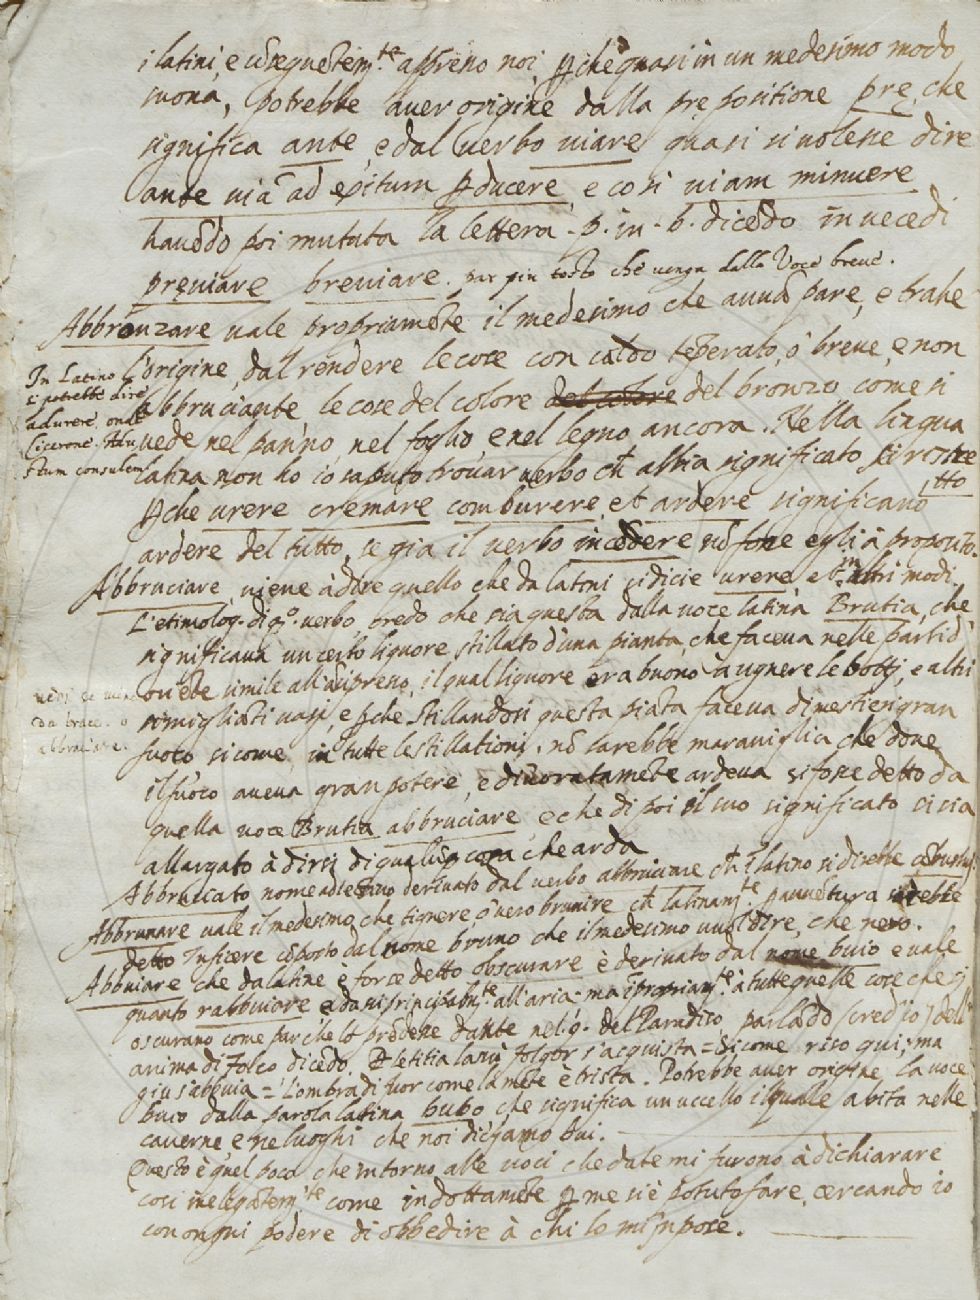 i latini, e cōseguētem.te appreno noi, p̱che quasi in un medesimo modo
suona, potrebbe aver origine dalla prepositione pre, che
significa ante, e dal verbo viare quasi si volesse dire
ante viā ad exitum p̱ducere, e così viam minuere
havēdo poi mutata la lettera .p. in .b. dicēdo in vece di
previare breviare. par piu tosto che venga dalla Voce breve.
Abbronzare vale propriamēte il medesimo che avvāpare, e trahe
l'origine, dal rendere le cose con caldo tēperato, ò breve, e non
abbruciante le cose del colore del colore del bronzo come si
vede nel panno, nel foglio, e nel legno ancora. Nella lingua
latina non ho io saputo trovar verbo ch̄ abbia significato sì
tto
p̱che urere cremare comburere, et ardere significano
ardere del tutto, se gia il verbo incēdere nō fosse egli à proposito.
In Latino
si potrebbe dire
adurere, onde
Cicerone. Adu
stum consulem
Abbruciare, viene à dire quello che da latini si dicie urere, et in altri modi.
L'etimolog. di q.o verbo, credo che sia questa dalla voce latina Brutia, che
significava un certo liquore stillato d'una pianta, che faceva nelle parti di
simile all'arcipresso, il qual liquore era buono à ugnere le botti, e altri
somigliāti vasi, e p̱che stillandosi questa piāta faceva di mestieri gran
fuoco si come in tutte le stillationi. nō sarebbe maraviglia che dove
il fuoco aveva gran potere, e divoratamēte ardeva si fosse detto da
quella voce Brutia abbruciare, e che di poi il suo significato si sia
allargato à dirsi di qualūq̱ cosa che arda
abbraciare.
Abbruciato nome adiettivo derivato dal verbo abbruciare ch̄ ī latino si direbbe cōbustus
Abbrunare vale il medesimo, che tignere ò vero brunire ch̄ latinam.te p̱ avvētura sarebbe
detto Inficere cōposto dal nome bruno che il medesimo vuol dire, che nero.
Abbuiare che da latini è forse detto obscurare è derivato dal nome buio e vale
quanto rabbuiare e da noi principalm.te all'aria. ma īpropriam.te à tutte quelle cose che si
oscurano come par che lo prēdese Dante nel 9. del Paradiso, parlādo (cred'io) dell'
anima di Folco dicēdo. P̱ letitia lassù folgor s'acquista = Si come riso qui; ma
giu s'abbuia = L'ombra di fuor come la mēte è trista. Potrebbe aver origine la voce
buio dalla parola latina bubo che significa un uccello il quale abita nelle
caverne, e ne luoghi che noi diciamo bui.
Questo è quel poco che intorno alle voci che date mi furono à dichiarare
così inelegātem.te come indottamēte p̱ me si è potuto fare, cercando io
con ogni podere di obbedire à chi lo m'impose.